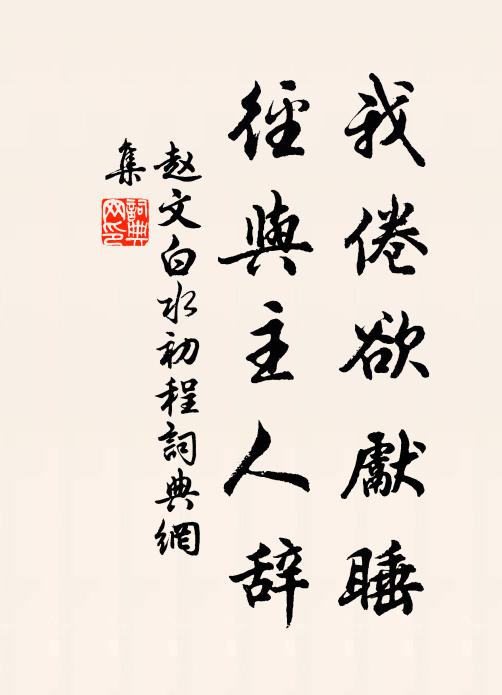 我倦欲獻睡
徑與主人辞
赵文白水初程詞典網
集
詞典網印